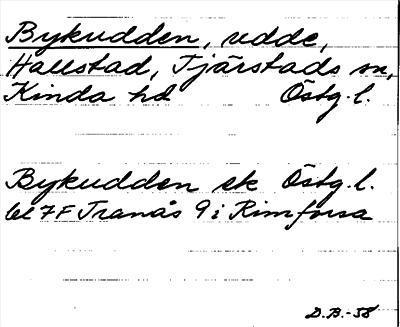 Bykudden, udde,
Hallstad, Tjärstads sn,
Kinda hd Östg. l.
Bykudden ek Östg. l.
bl 7F Tranås 9 i Rimforsa
D.B.-58